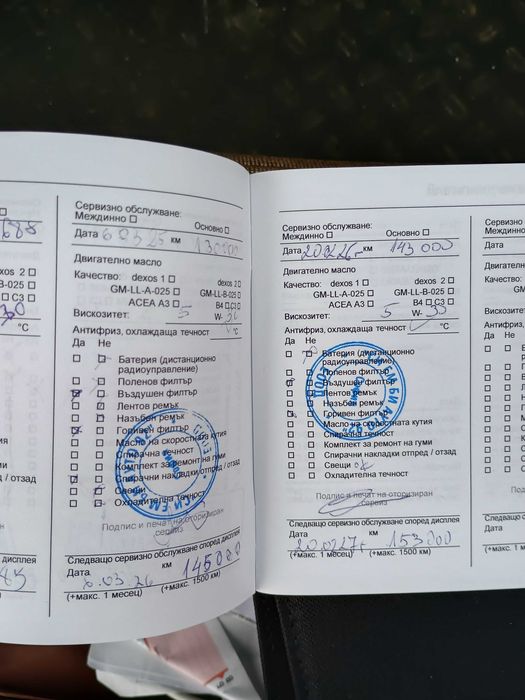 Сервизно обслужване:
Междинно Основно
Дата 6 03 25 км 130000
Двигателно масло
Качество: dexos 1 dexos 2
GM-LL-A-025 GM-LL-B-025
ACEA A3 B4 C3
Вискозитет: 5 W- 30
Антифриз, охлаждаща течност °C
Да Не
Батерия (дистанционно
радиоуправление)
Поленов филтър
Въздушен филтър
Лентов ремък
Назъбен ремък
Горивен филтър
Масло на скоростната кутия
Спирачна течност
Комплект за ремонт на гуми
Спирачни накладки отпред / отзад
Свещи
Охладителна течност
Подпис и печат на оторизиран
сервиз
Следващо сервизно обслужване според дисплея
Дата км 145000
6.03.26
(+макс. 1 месец) (+макс. 1500 км)
Сервизно обслужване:
Междинно Основно
Дата км 143 000
Двигателно масло
Качество: dexos 1 dexos 2
GM-LL-A-025 GM-LL-B-025
ACEA A3 B4 C3
Вискозитет: 5 W- 30
Антифриз, охлаждаща течност °C
Да Не
Батерия (дистанционно
радиоуправление)
Поленов филтър
Въздушен филтър
Лентов ремък
Назъбен ремък
Горивен филтър
Масло на скоростната кутия
Спирачна течност
Комплект за ремонт на гуми
Спирачни накладки отпред / отзад
Свещи
Охладителна течност
Подпис и печат на оторизиран
сервиз
Следващо сервизно обслужване според дисплея
Дата км 153000
(+макс. 1 месец) (+макс. 1500 км)